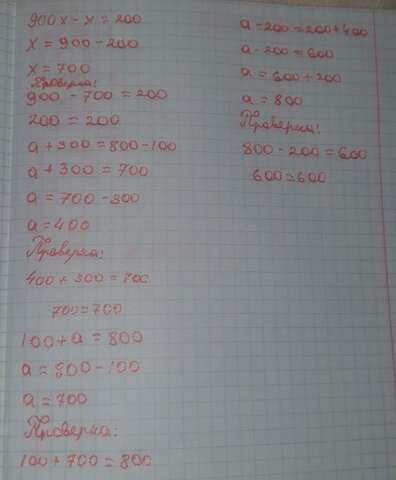 900x - x = 200
x = 900 - 200
x = 700
Проверка:
900 - 700 = 200
200 = 200
a + 300 = 800 - 100
a + 300 = 700
a = 700 - 300
a = 400
Проверка:
400 + 300 = 700
700 = 700
100 + a = 800
a = 800 - 100
a = 700
Проверка:
100 + 700 = 800
a - 200 = 200 + 400
a - 200 = 600
a = 600 + 200
a = 800
Проверка:
800 - 200 = 600
600 = 600